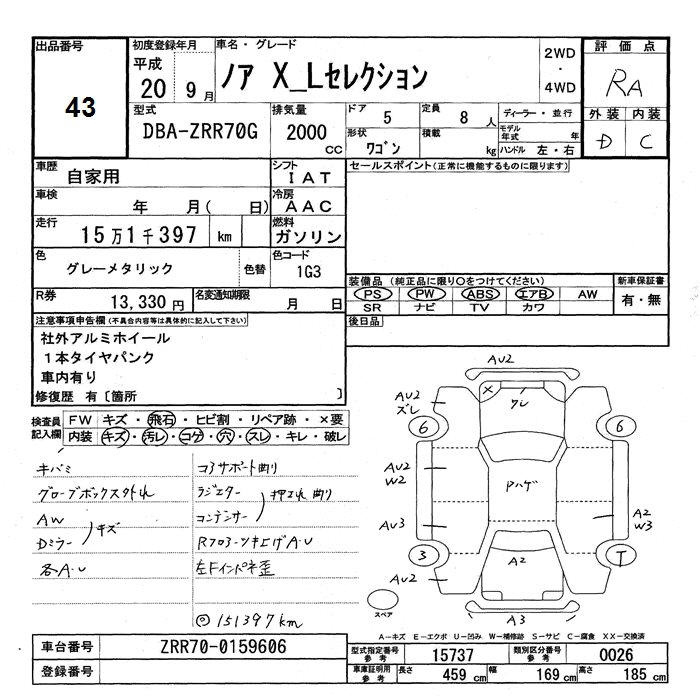 出品番号
43
初度登録年月
平成
20 9 月
車名・グレード
ノア X_Lセレクション
2WD
・
4WD
評価点
RA
外装 内装
D C
型式
DBA-ZRR70G
排気量
2000
cc
ドア 5
定員 8 人
形状 ワゴン
積載 kg
ディーラー・並行
モデル年式 年
ハンドル 左・右
車歴 自家用
シフト I A T
セールスポイント(正常に機能するものに限ります)
車検 年 月( 日)
冷房 A A C
走行 15万1千397 km
燃料 ガソリン
色 グレーメタリック 色替
色コード 1G3
R券 13,330 円
名変通知期限 月 日
装備品(純正品に限り○をつけてください)
新車保証書
PS PW ABS エアB AW
有・無
SR ナビ TV カワ
後日品
注意事項申告欄(不具合内容等は具体的に記入して下さい)
社外アルミホイール
1本タイヤパンク
車内有り
修復歴 有〔箇所 〕
検査員記入欄
FW キズ・飛石・ヒビ割・リペア跡・×要
内装 キズ・汚レ・コゲ・穴・スレ・キレ・破レ
キバミ
グローブボックス外れ
AW
Dミラー
キズ
各A・U
コアサポート曲り
ラジエター
コンデンサー
押され曲り
Rフロアーツキ上げA・U
左Fインパネ歪
◎151397km
AU2
AU2
ズレ
クレ
6
6
AU2
W2
Pハゲ
AU3
A2
W3
3
T
A2
AU2
A3
スペア
A-キズ E-エクボ U-凹み W-補修跡 S-サビ C-腐食 XX-交換済
車台番号 ZRR70-0159606
登録番号
型式指定番号 参考 15737
類別区分番号 参考 0026
車庫証明用 参考
長さ 459 cm
幅 169 cm
高さ 185 cm